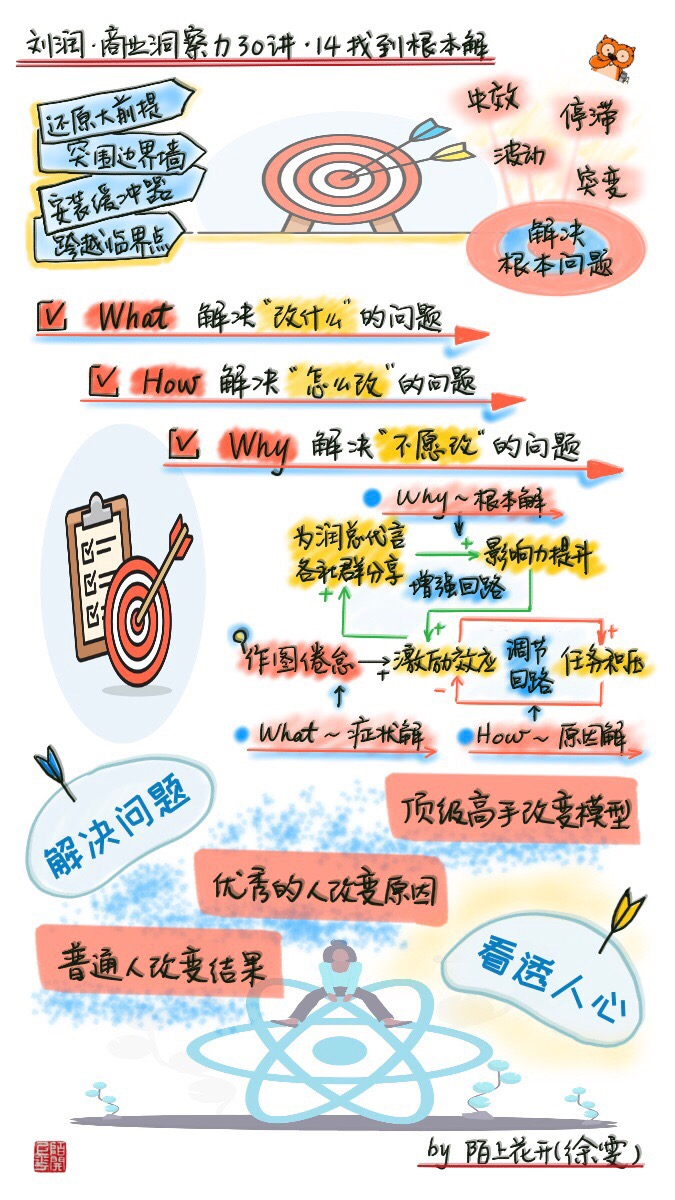 刘润·商业洞察力30讲·14找到根本解
还原大前提
突围边界墙
安装缓冲器
跨越临界点
失效
停滞
波动
突变
解决
根本问题
What 解决“改什么”的问题
How 解决“怎么改”的问题
Why 解决“不愿改”的问题
Why~根本解
为润总代言
各社群分享
+
影响力提升
增强回路
+
+
作图倦怠
+
激励效应
调节
回路
+
-
任务积压
What~症状解
How~原因解
解决问题
顶级高手改变模型
优秀的人改变原因
普通人改变结果
看透人心
by 陌上花开(徐雯)